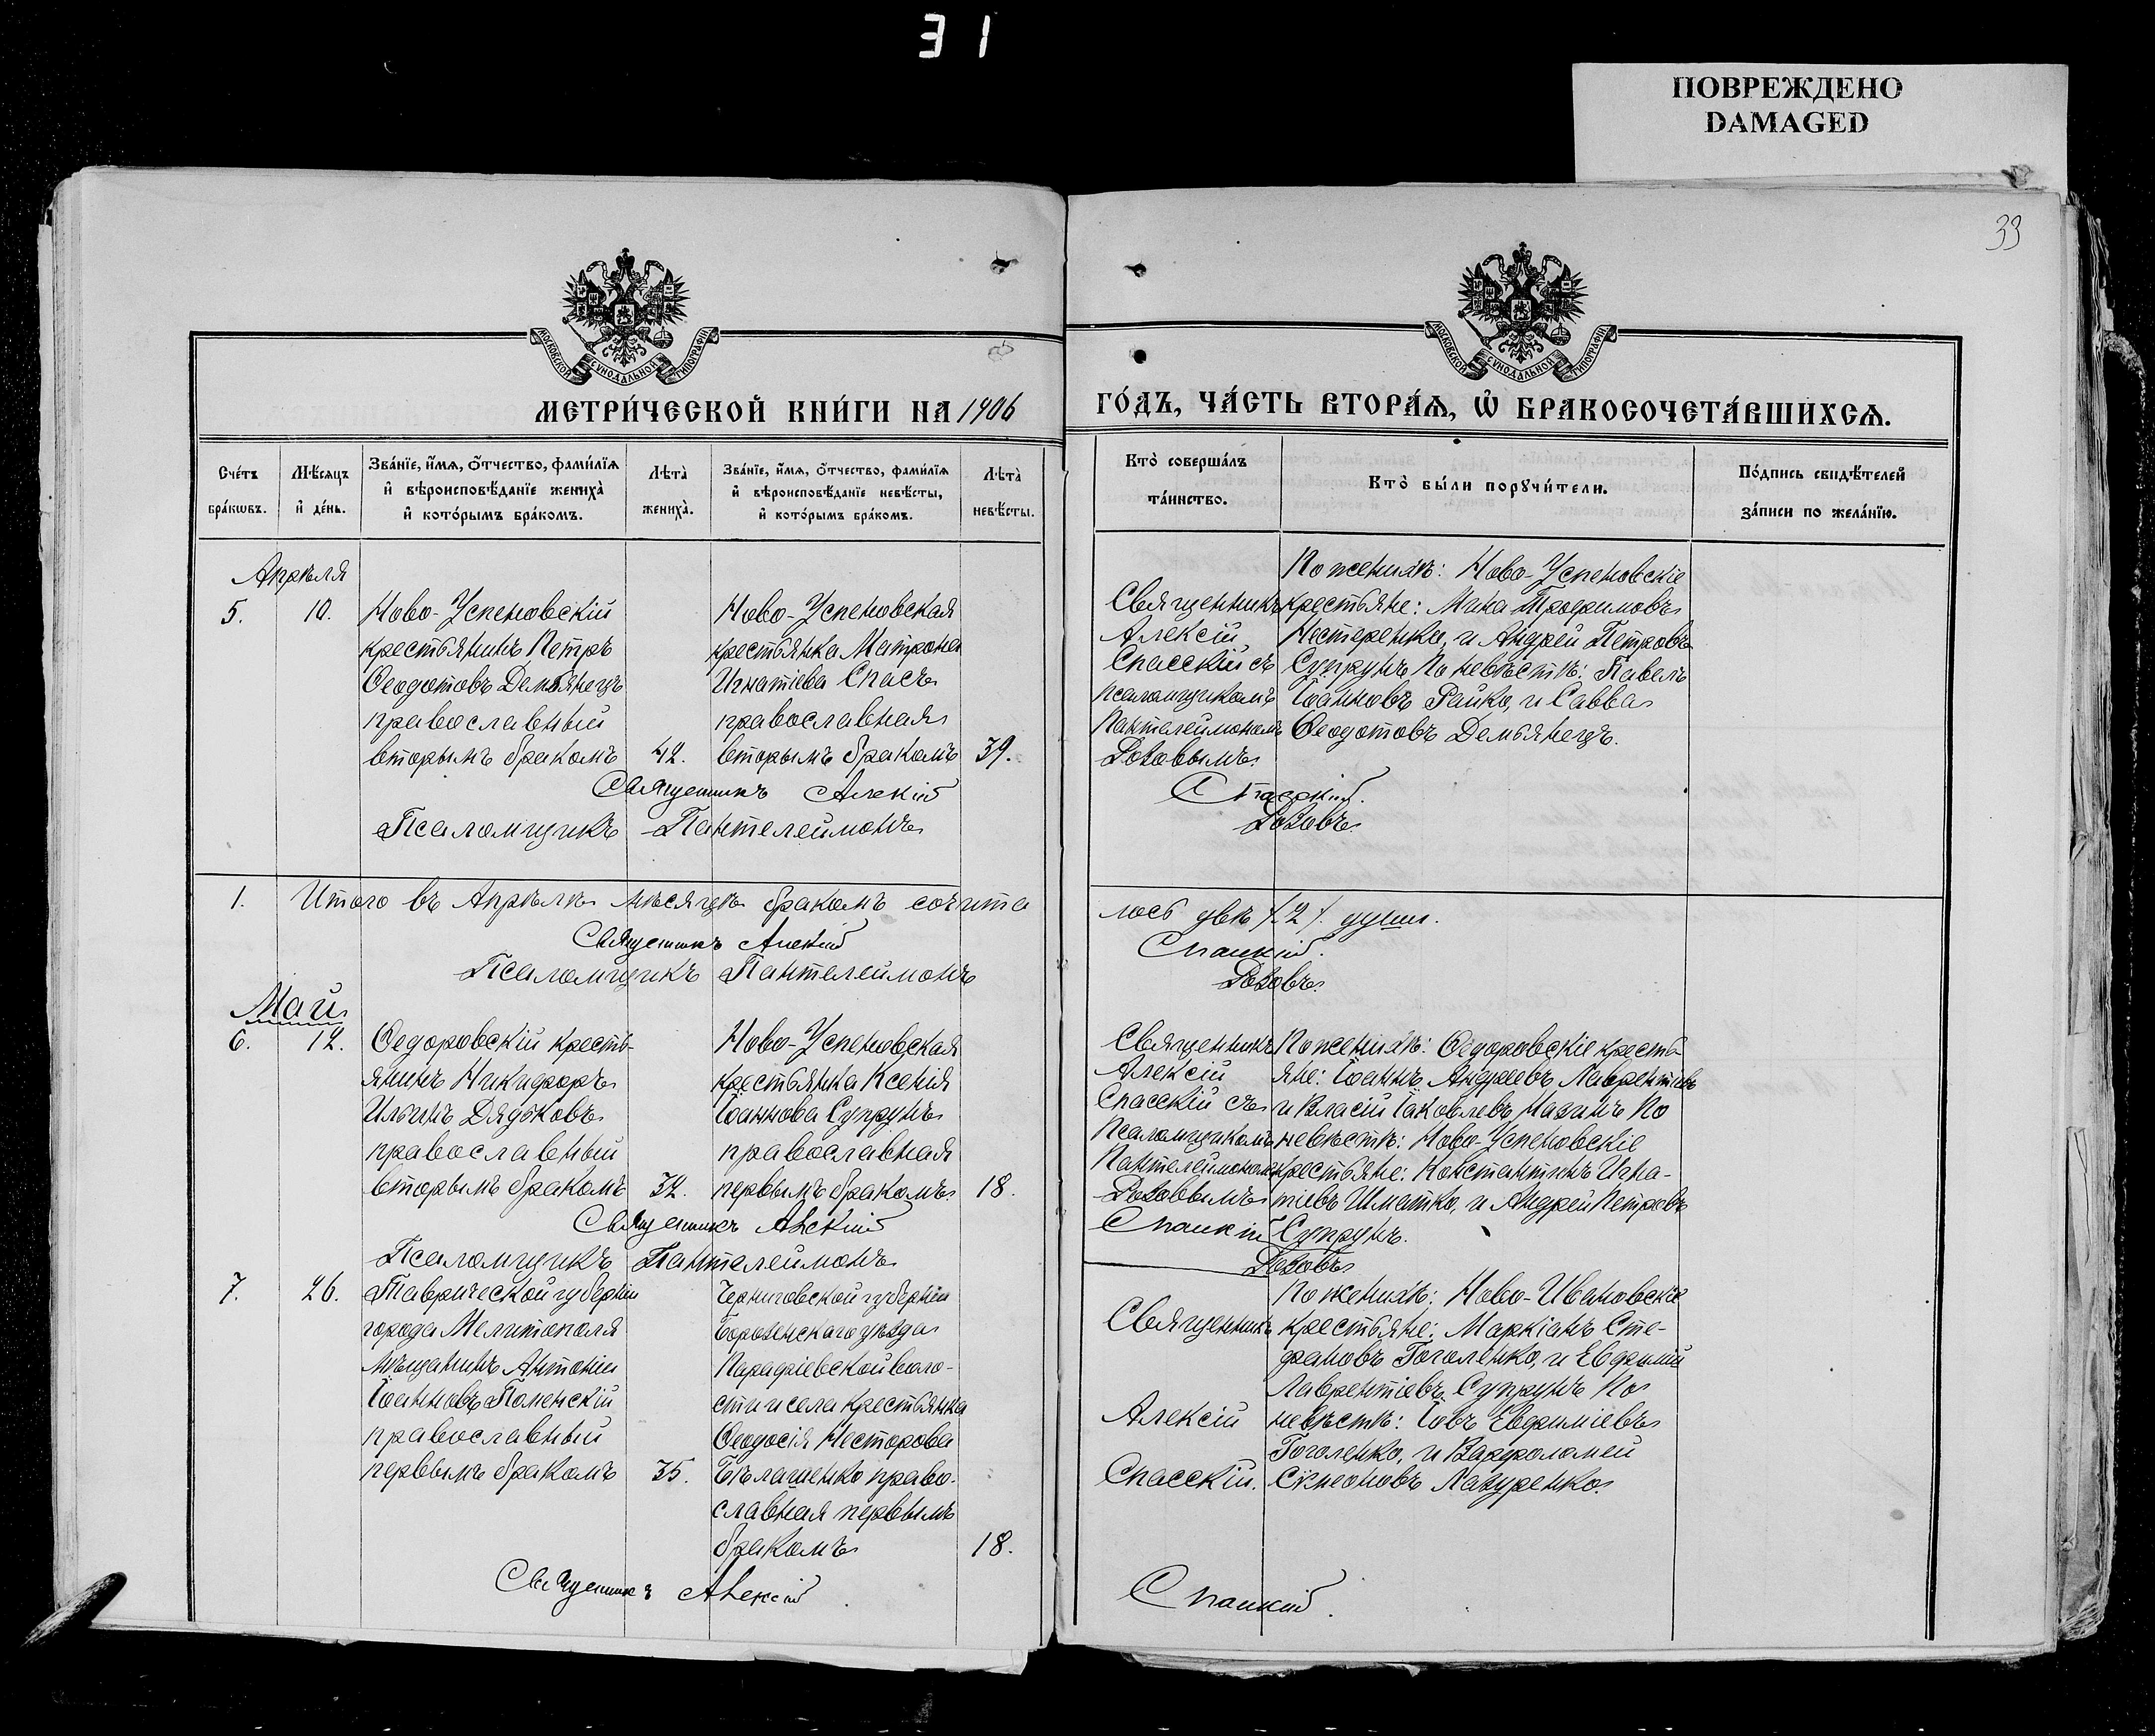 31
ПОВРЕЖДЕНО
DAMAGED
33
МОСКОВСКОЙ СУНОДАЛЬНОЙ ТИПОГРАФІИ
МОСКОВСКОЙ СУНОДАЛЬНОЙ ТИПОГРАФІИ
МЕТРИ́ЧЕСКОЙ КНИ́ГИ НА 1906
ГО́ДЪ, ЧА́СТЬ ВТОРА́Ѧ, Ѡ҆ БРАКОСОЧЕТА́ВШИХСѦ.
Сче́тъ
бра́кѡвъ.
Мѣ́сѧцъ
и҆ де́нь.
Зва́нїе, и҆́мѧ, ѻ҆́тчество, фами́лїѧ
и҆ вѣроисповѣ́данїе жениха̀
и҆ кото́рымъ бра́комъ.
Лѣта̀
жениха̀.
Зва́нїе, и҆́мѧ, ѻ҆́тчество, фами́лїѧ
и҆ вѣроисповѣ́данїе невѣ́сты,
и҆ кото́рымъ бра́комъ.
Лѣта̀
невѣ́сты.
Кто̀ соверша́лъ
та́инство.
Кто̀ бы́ли порꙋчи́тели.
По́дпись свидѣ́телей
за́писи по жела́нїю.
Апрѣля
5. 10.
Ново-Успеновскій
крестьянинъ Петръ
Ѳеодотовъ Демьянецъ
православный
вторымъ бракомъ 42.
Ново-Успеновская
крестьянка Матрона
Игнатіева Спасъ
православная
вторымъ бракомъ 39.
Священникъ
Алексій
Спасскій съ
псаломщикомъ
Пантелеймономъ
Розовымъ
По женихѣ: Ново-Успеновскіе
крестьяне: Мина Трофимовъ
Нестеренко, и Андрей Петровъ
Супрунъ По невѣстѣ: Павелъ
Іоанновъ Райко, и Савва
Ѳеодотовъ Демьянецъ.
Священникъ Алексій Спасскій.
Псаломщикъ Пантелеймонъ Розовъ
1. Итого въ Апрѣлѣ мѣсяцѣ бракомъ сочета
лось двѣ /2/. души.
Священникъ Алексій Спасскій.
Псаломщикъ Пантелеймонъ Розовъ
Май
6. 12.
Ѳедоровскій кресть-
янинъ Никифоръ
Ильинъ Дядьковъ
православный
вторымъ бракомъ 32.
Ново-Успеновская
крестьянка Ксенія
Іоаннова Супрунъ
православная
первымъ бракомъ 18.
Священникъ
Алексій
Спасскій съ
Псаломщикомъ
Пантелеймономъ
Розовымъ
По женихѣ: Ѳедоровскіе кресть
яне: Іоаннъ Андреевъ Лаврентіевъ
и Власій Іаковлевъ Мазинъ По
невѣстѣ: Ново-Успеновскіе
крестьяне: Константинъ Игна-
тіевъ Шматко, и Андрей Петровъ
Супрунъ.
Священникъ Алексій Спасскій
Псаломщикъ Пантелеймонъ Розовъ
7. 26.
Таврической губерніи
города Мелитополя
мѣщанинъ Антоній
Іоанновъ Поленскій
православный
первымъ бракомъ 35.
Черниговской губерніи
Борзенскаго уѣзда
Парафіевской воло-
сти и села крестьянка
Ѳеодосія Несторова
Бѣлашенко право-
славная первымъ
бракомъ 18.
Священникъ
Алексій
Спасскій.
По женихѣ: Ново-Ивановскіе
крестьяне: Маркіанъ Сте-
фановъ Гоголенко, и Евфимій
Лаврентіевъ Супрунъ По
невѣстѣ: Іовъ Евфиміевъ
Гоголенко, и Варфоломей
Симеоновъ Лазуренко.
Священникъ Алексій Спасскій.